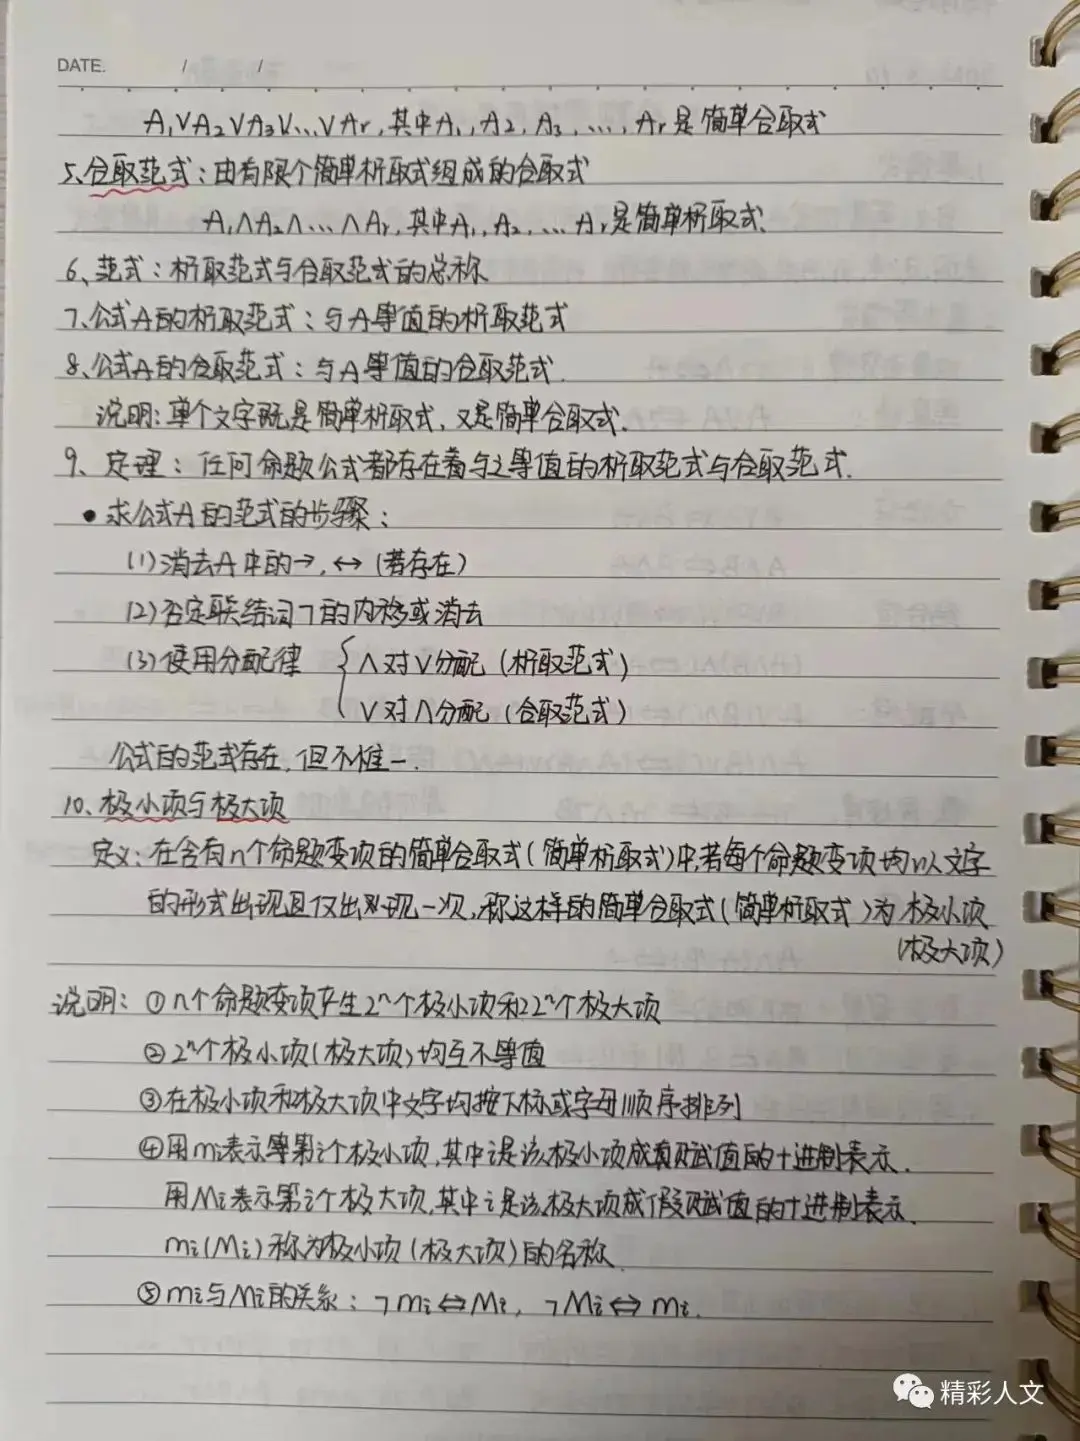 DATE. / /
A₁∨A₂∨A₃∨...∨Ar,其中A₁,A₂,A₃,...,Ar是简单合取式
5、合取范式:由有限个简单析取式组成的合取式
A₁∧A₂∧...∧Ar,其中A₁,A₂,...Ar是简单析取式.
6、范式:析取范式与合取范式的总称
7、公式A的析取范式:与A等值的析取范式
8、公式A的合取范式:与A等值的合取范式.
说明:单个文字既是简单析取式,又是简单合取式.
9、定理:任何命题公式都存在着与之等值的析取范式与合取范式.
• 求公式A的范式的步骤:
(1)消去A中的→,↔(若存在)
(2)否定联结词¬的内移或消去
(3)使用分配律 { ∧对∨分配(析取范式)
∨对∧分配(合取范式)
公式的范式存在,但不惟一.
10、极小项与极大项
定义:在含有n个命题变项的简单合取式(简单析取式)中,若每个命题变项均以文字
的形式出现且仅出现一次,称这样的简单合取式(简单析取式)为极小项
(极大项)
说明:①n个命题变项产生2ⁿ个极小项和22ⁿ个极大项
②2ⁿ个极小项(极大项)均互不等值
③在极小项和极大项中文字均按下标或字母顺序排列
④用mi表示等第i个极小项,其中i是该极小项成真赋值的十进制表示.
用Mi表示第i个极大项,其中i是该极大项成假赋值的十进制表示.
mi(Mi)称为极小项(极大项)的名称.
⑤mi与Mi的关系:¬mi⇔Mi,¬Mi⇔mi.
精彩人文